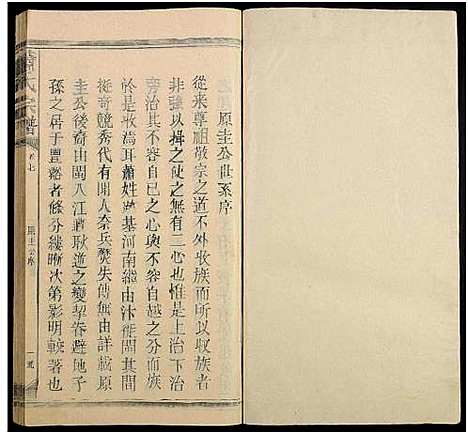 原圭公世系序
從來尊祖敬宗之道不外收族而所以收族者
非強以揖之使之無有二心也惟是上治下治
旁治其不容自已之心與不容自誣之分而族
於是收焉耳蕭姓蹟基河南繼由汴徙閩其間
挺奇競秀代有聞人奈兵燹失傳無由詳載原
圭公後裔由閩入江西耿逆之變挈眷避地子
孫之居于豐谿者條分縷晰次第影明較著也
氏宗譜
卷七
原圭公序
一